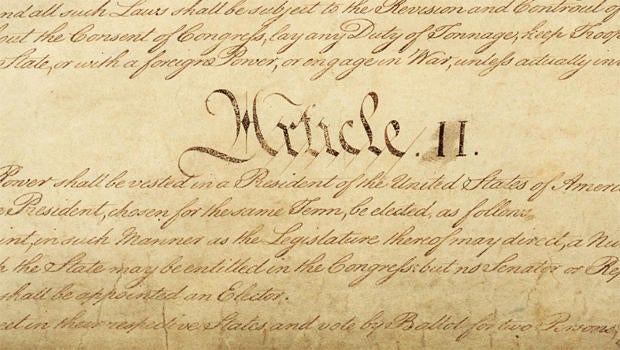 and all such Laws shall be subject to the Revision and Controul of
out the Consent of Congress, lay any Duty of Tonnage, keep Troop
State, or with a foreign Power, or engage in War, unless actually in
Article. II.
Power shall be vested in a President of the United States of Ameri
e President, chosen for the same Term, be elected, as follow
int, in such Manner as the Legislature thereof may direct, a Nu
h the State may be entitled in the Congress: but no Senator or Rep
shall be appointed an Elector.
eet in their respective States, and vote by Ballot for two Persons,